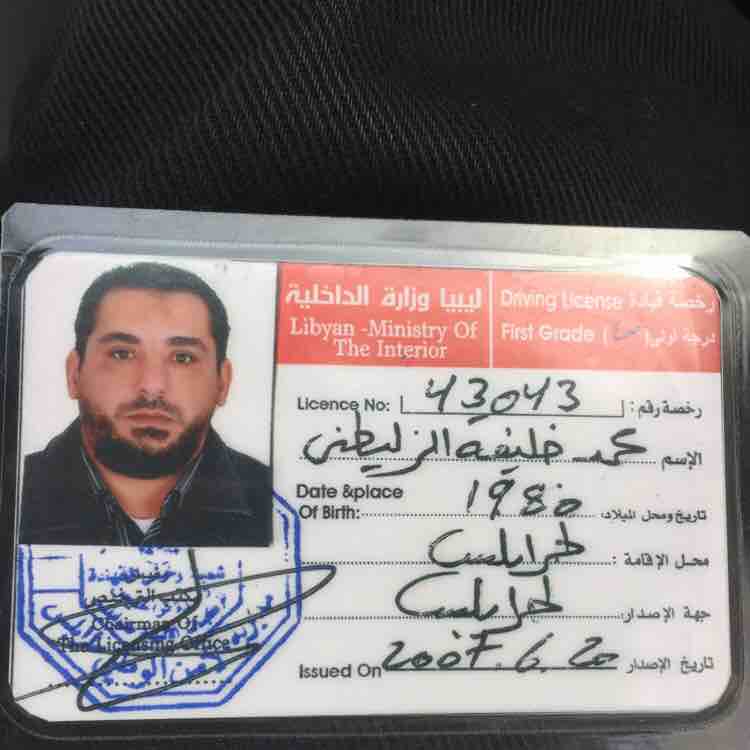 ليبيا وزارة الداخلية
Libyan -Ministry Of
The Interior
Driving License رخصة قيادة
First Grade ( ) درجة أولى
Licence No: 43043 رخصة رقم:
الإسم محمد خليفة الزليطني
Date &place
Of Birth: 1980 تاريخ ومحل الميلاد:
محل الإقامة: طرابلس
جهة الإصدار: طرابلس
Issued On 2007.6.20 تاريخ الإصدار
Chairman Of
The Licensing Office